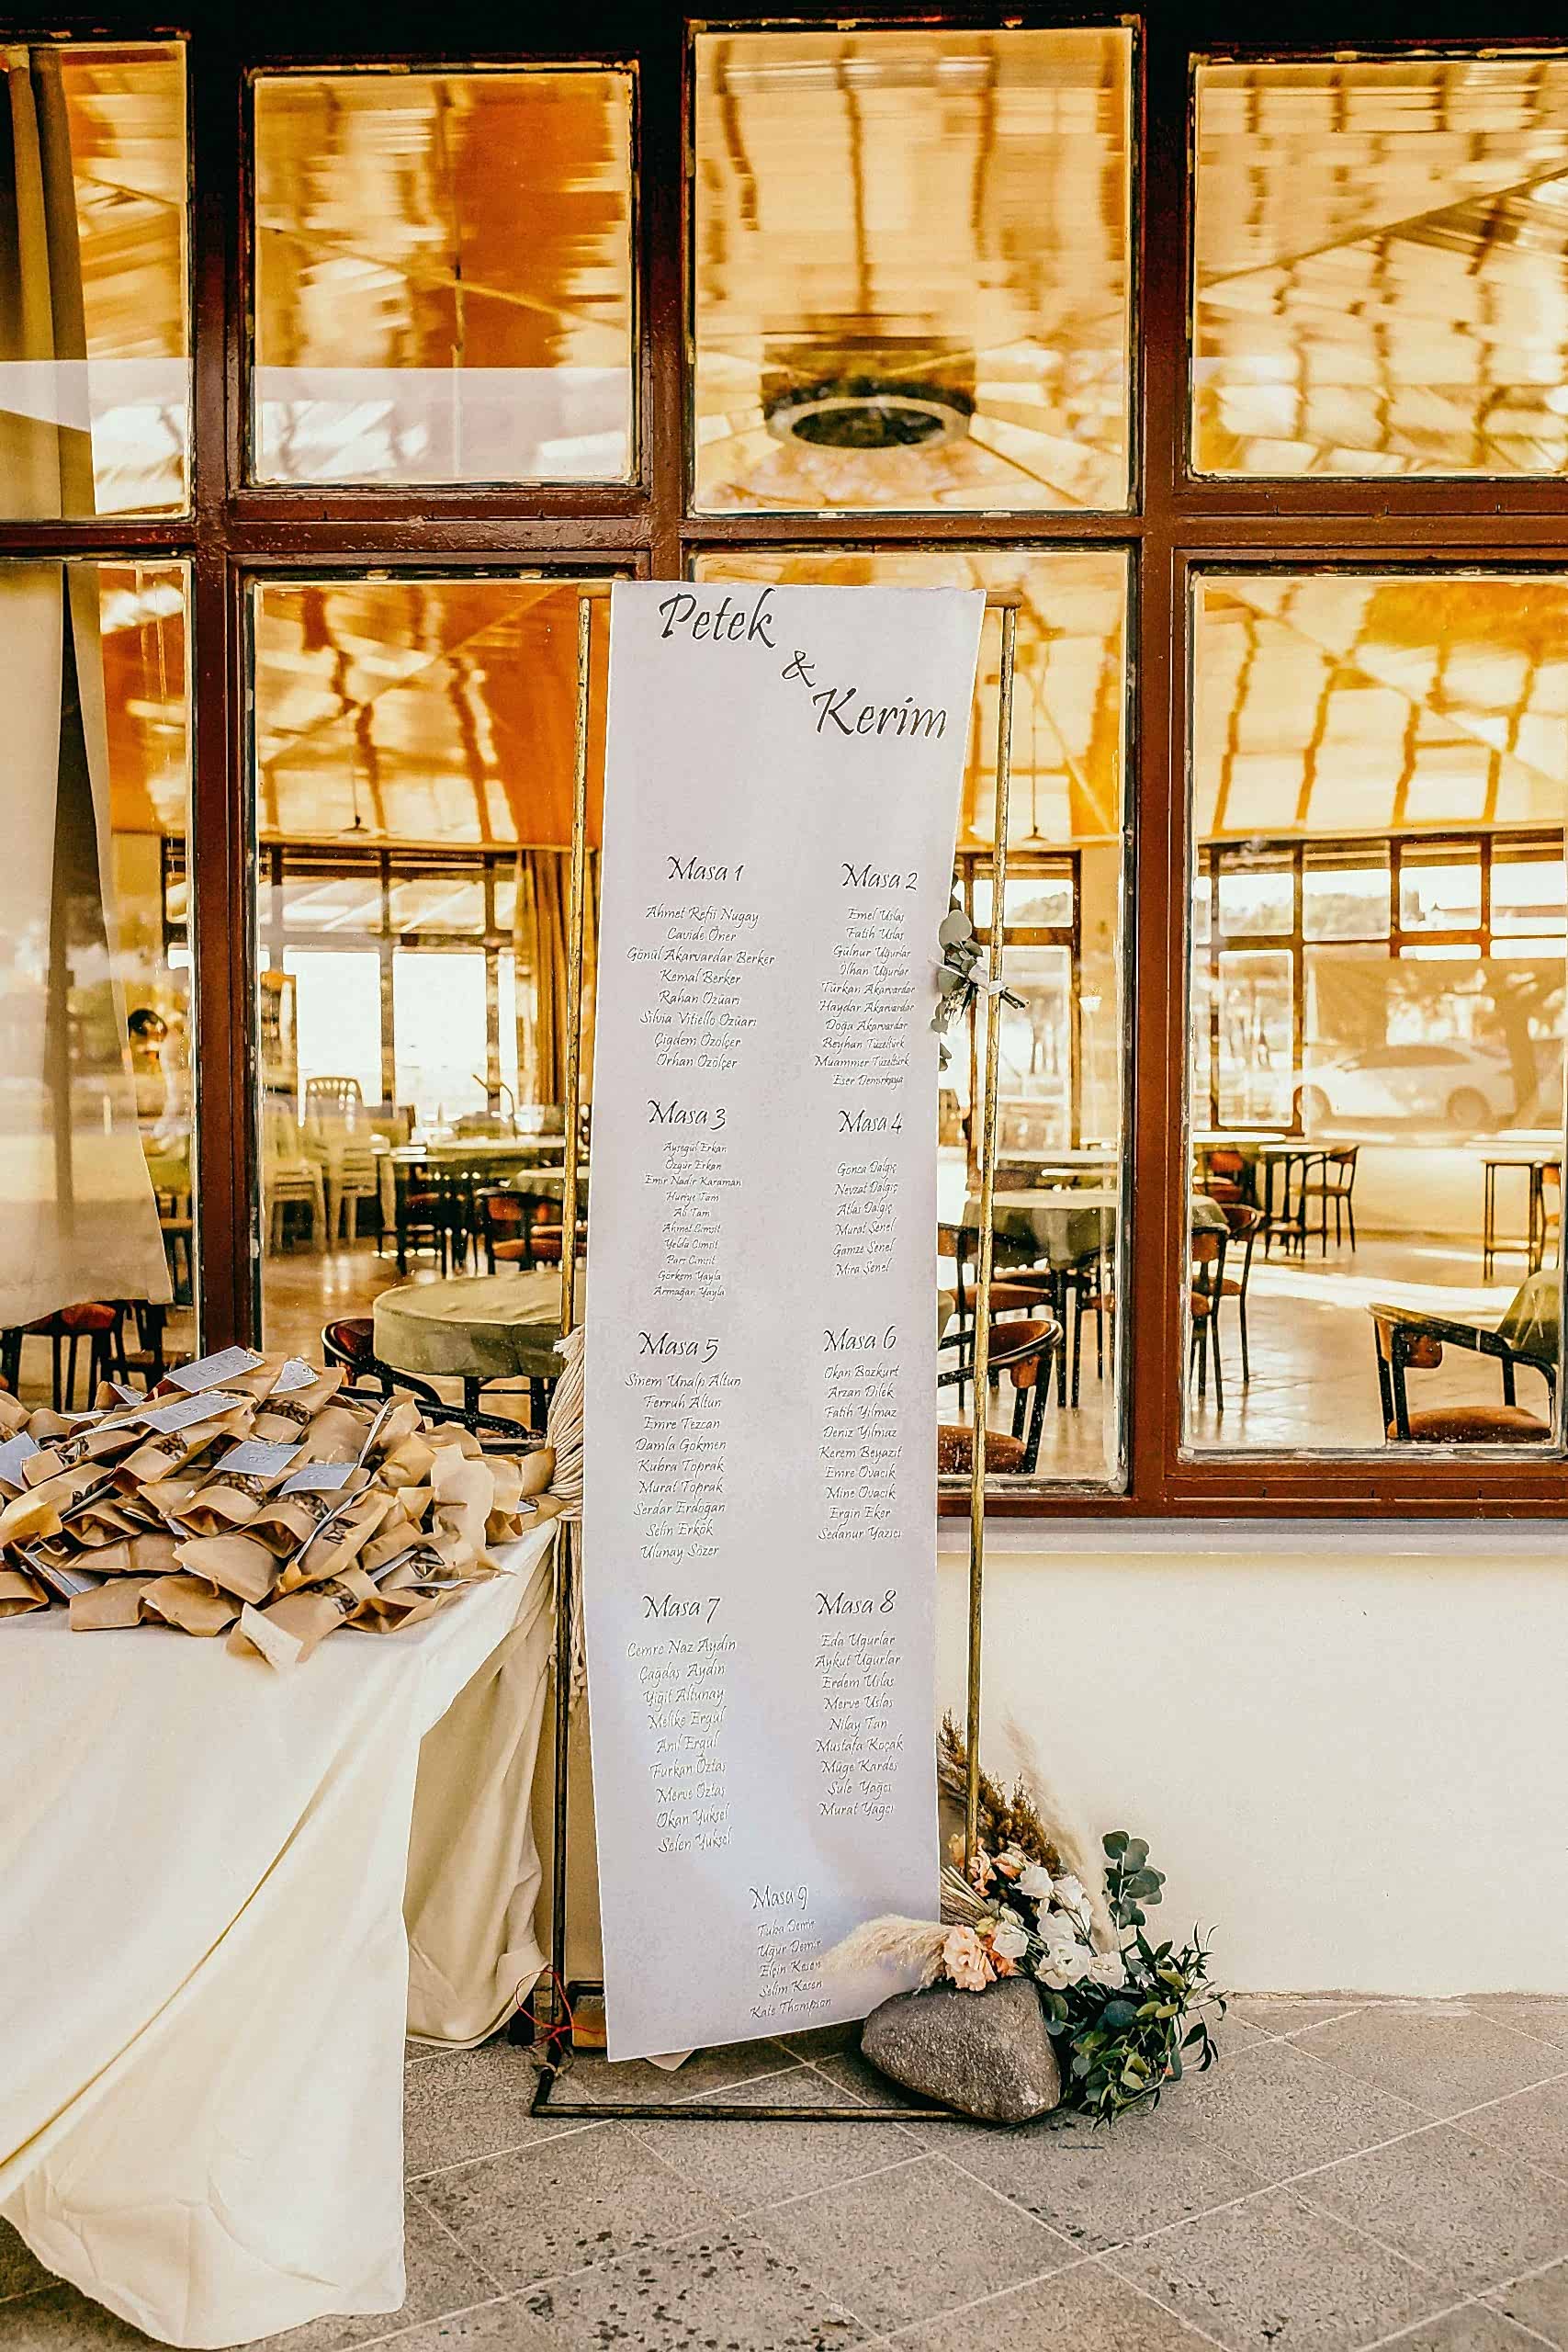 Petek
&
Kerim
Masa 1
Ahmet Refii Nugay
Cavide Öner
Gönül Akarvardar Berker
Kemal Berker
Rahan Özüarı
Silvia Vitiello Özüarı
Çigdem Özölçer
Orhan Özölçer
Masa 2
Emel Uslaş
Fatih Uslaş
Gülnur Uğurlar
İlhan Uğurlar
Türkan Akarvardar
Haydar Akarvardar
Doğa Akarvardar
Beyhan Tüzeltürk
Muammer Tüzeltürk
Eser Demirkaya
Masa 3
Ayşegül Erkan
Özgür Erkan
Emir Nadir Karaman
Huriye Tam
Ali Tam
Ahmet Cimşit
Yelda Cimşit
Pars Cimşit
Görkem Yayla
Armağan Yayla
Masa 4
Gonca Dalgıç
Nevzat Dalgıç
Atlas Dalgıç
Murat Şenel
Gamze Şenel
Mira Şenel
Masa 5
Sinem Ünalp Altun
Ferruh Altun
Emre Tezcan
Damla Gökmen
Kübra Toprak
Murat Toprak
Serdar Erdoğan
Selin Erkök
Ulunay Sözer
Masa 6
Okan Bozkurt
Arzan Dilek
Fatih Yılmaz
Deniz Yılmaz
Kerem Beyazıt
Emre Ovacık
Mine Ovacık
Ergin Eker
Sedanur Yazıcı
Masa 7
Cemre Naz Aydın
Çağdaş Aydın
Yiğit Altunay
Melike Ergül
Anıl Ergül
Furkan Öztaş
Merve Öztaş
Okan Yüksel
Selen Yüksel
Masa 8
Eda Uğurlar
Aykut Uğurlar
Erdem Uslaş
Merve Uslaş
Nilay Tan
Mustafa Koçak
Müge Kardeş
Şule Yağcı
Murat Yağcı
Masa 9
Tuba Demir
Uğur Demir
Elçin Kesen
Selim Kesen
Kate Thompson